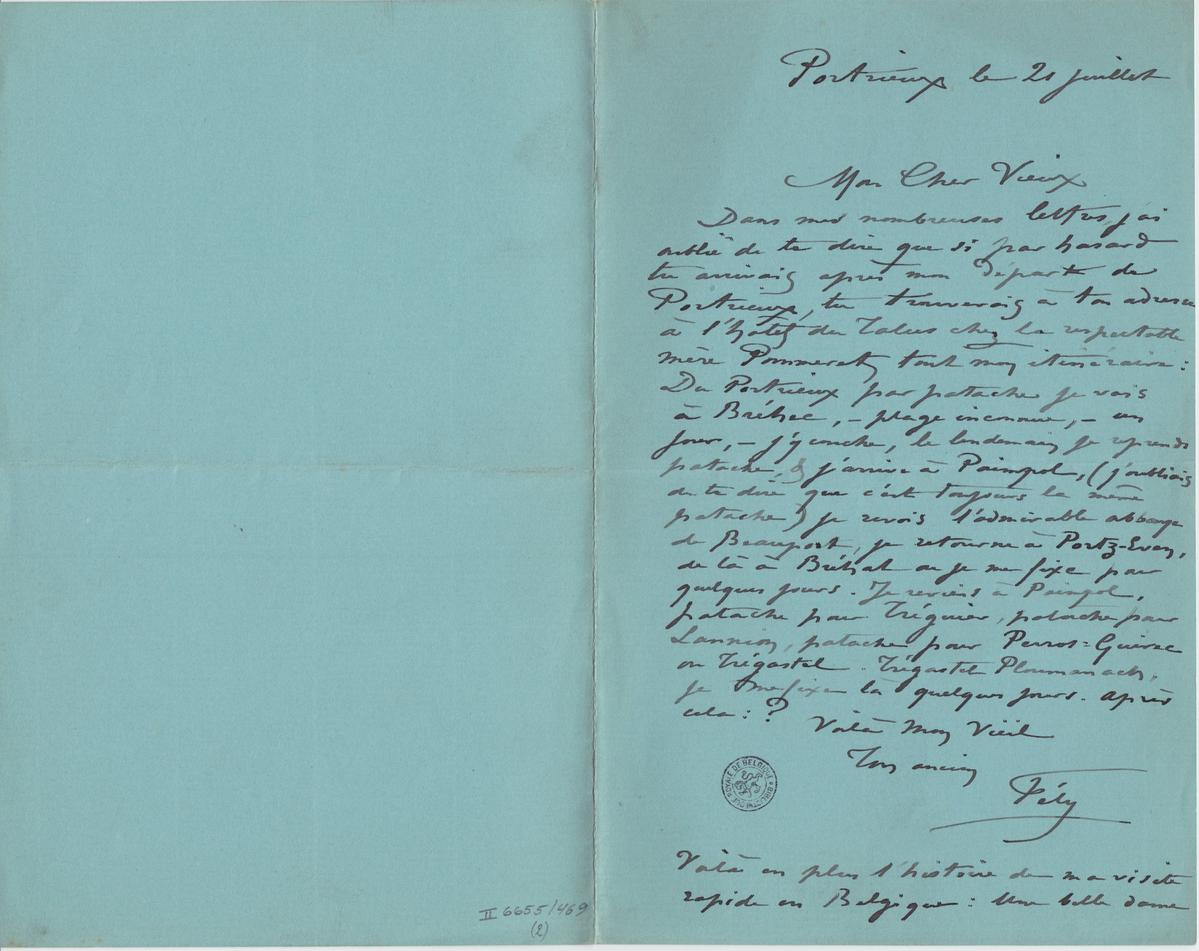 Portrieux le 21 juillet
Mon Cher Vieux
Dans mes nombreuses lettres, j'ai
oublié de te dire que si par hasard
tu arrivais après mon départ de
Portrieux, tu trouverais à ton adresse
à l'hôtel du Talus chez la respectable
mère Pommerat tout mon itinéraire :
Du Portrieux par patache je vais
à Bréhec, – plage inconnue, – un
jour, – j'y couche, le lendemain je reprends
patache, & j'arrive à Paimpol, (j'oubliais
de te dire que c'est toujours la même
patache) je revois l'admirable abbaye
de Beauport, je retourne à Portz-Even,
de là à Bréhat ou je me fixe pour
quelques jours. Je reviens à Paimpol,
patache pour Tréguier, patache pour
Lannion, patache pour Perros=Guirec
ou Trégastel. Trégastel Ploumanach,
je me fixe là quelques jours. Après
cela : ?
Voilà Mon Vieil
Ton ancien
Fély
BIBLIOTHÈQUE ROYALE DE BELGIQUE
Voilà en plus l'histoire de ma visite
rapide en Belgique : Une belle dame
II 6655/469
(2)